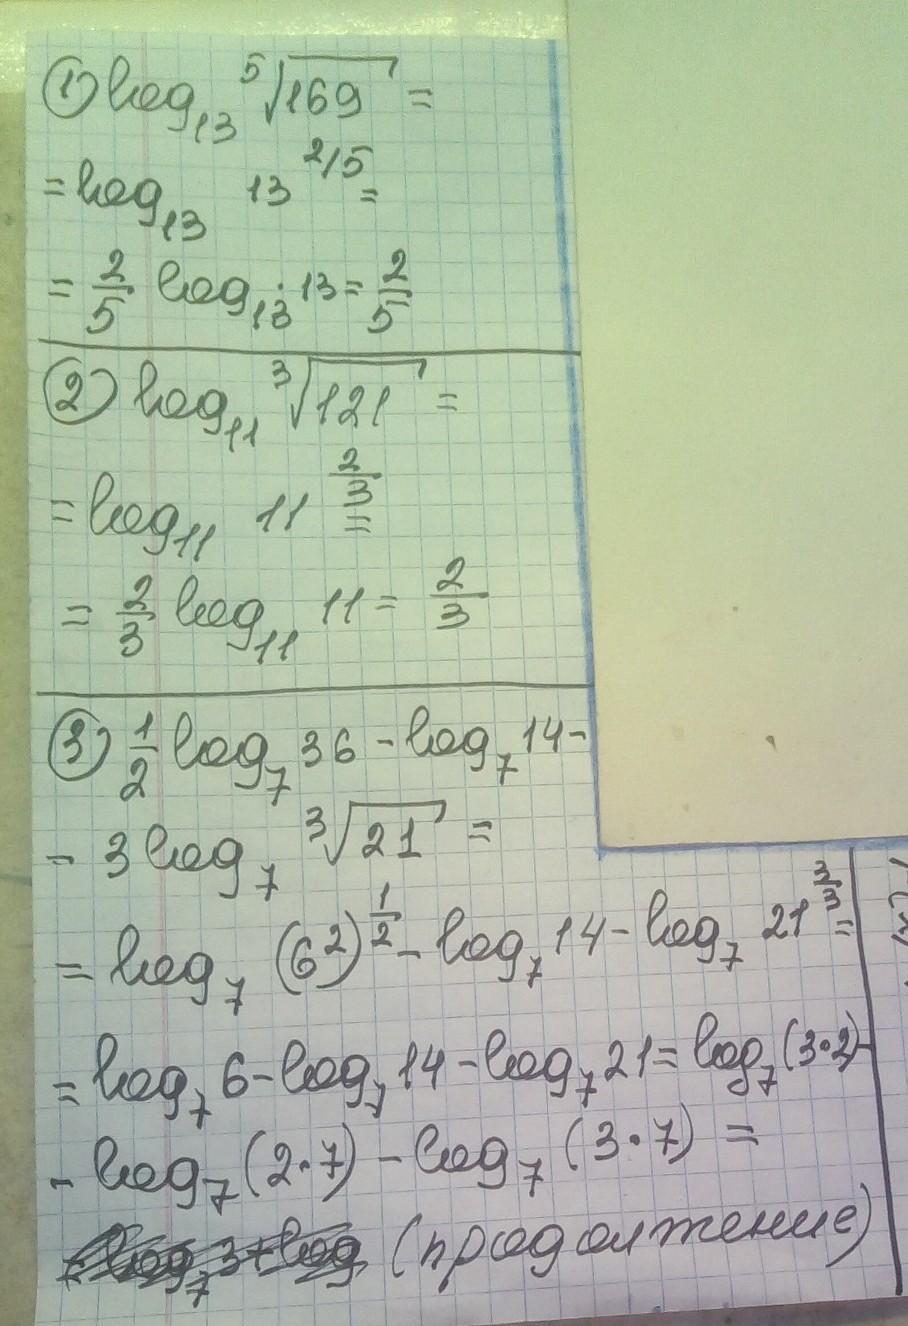 ① log₁₃ ⁵√169 =
= log₁₃ 13^(2/5) =
= 2/5 log₁₃ 13 = 2/5
② log₁₁ ³√121 =
= log₁₁ 11^(2/3) =
= 2/3 log₁₁ 11 = 2/3
③ 1/2 log₇ 36 - log₇ 14 -
- 3 log₇ ³√21 =
= log₇ (6²)^(1/2) - log₇ 14 - log₇ 21^(3/3) =
= log₇ 6 - log₇ 14 - log₇ 21 = log₇ (3·2) -
- log₇ (2·7) - log₇ (3·7) =
(продолжение)